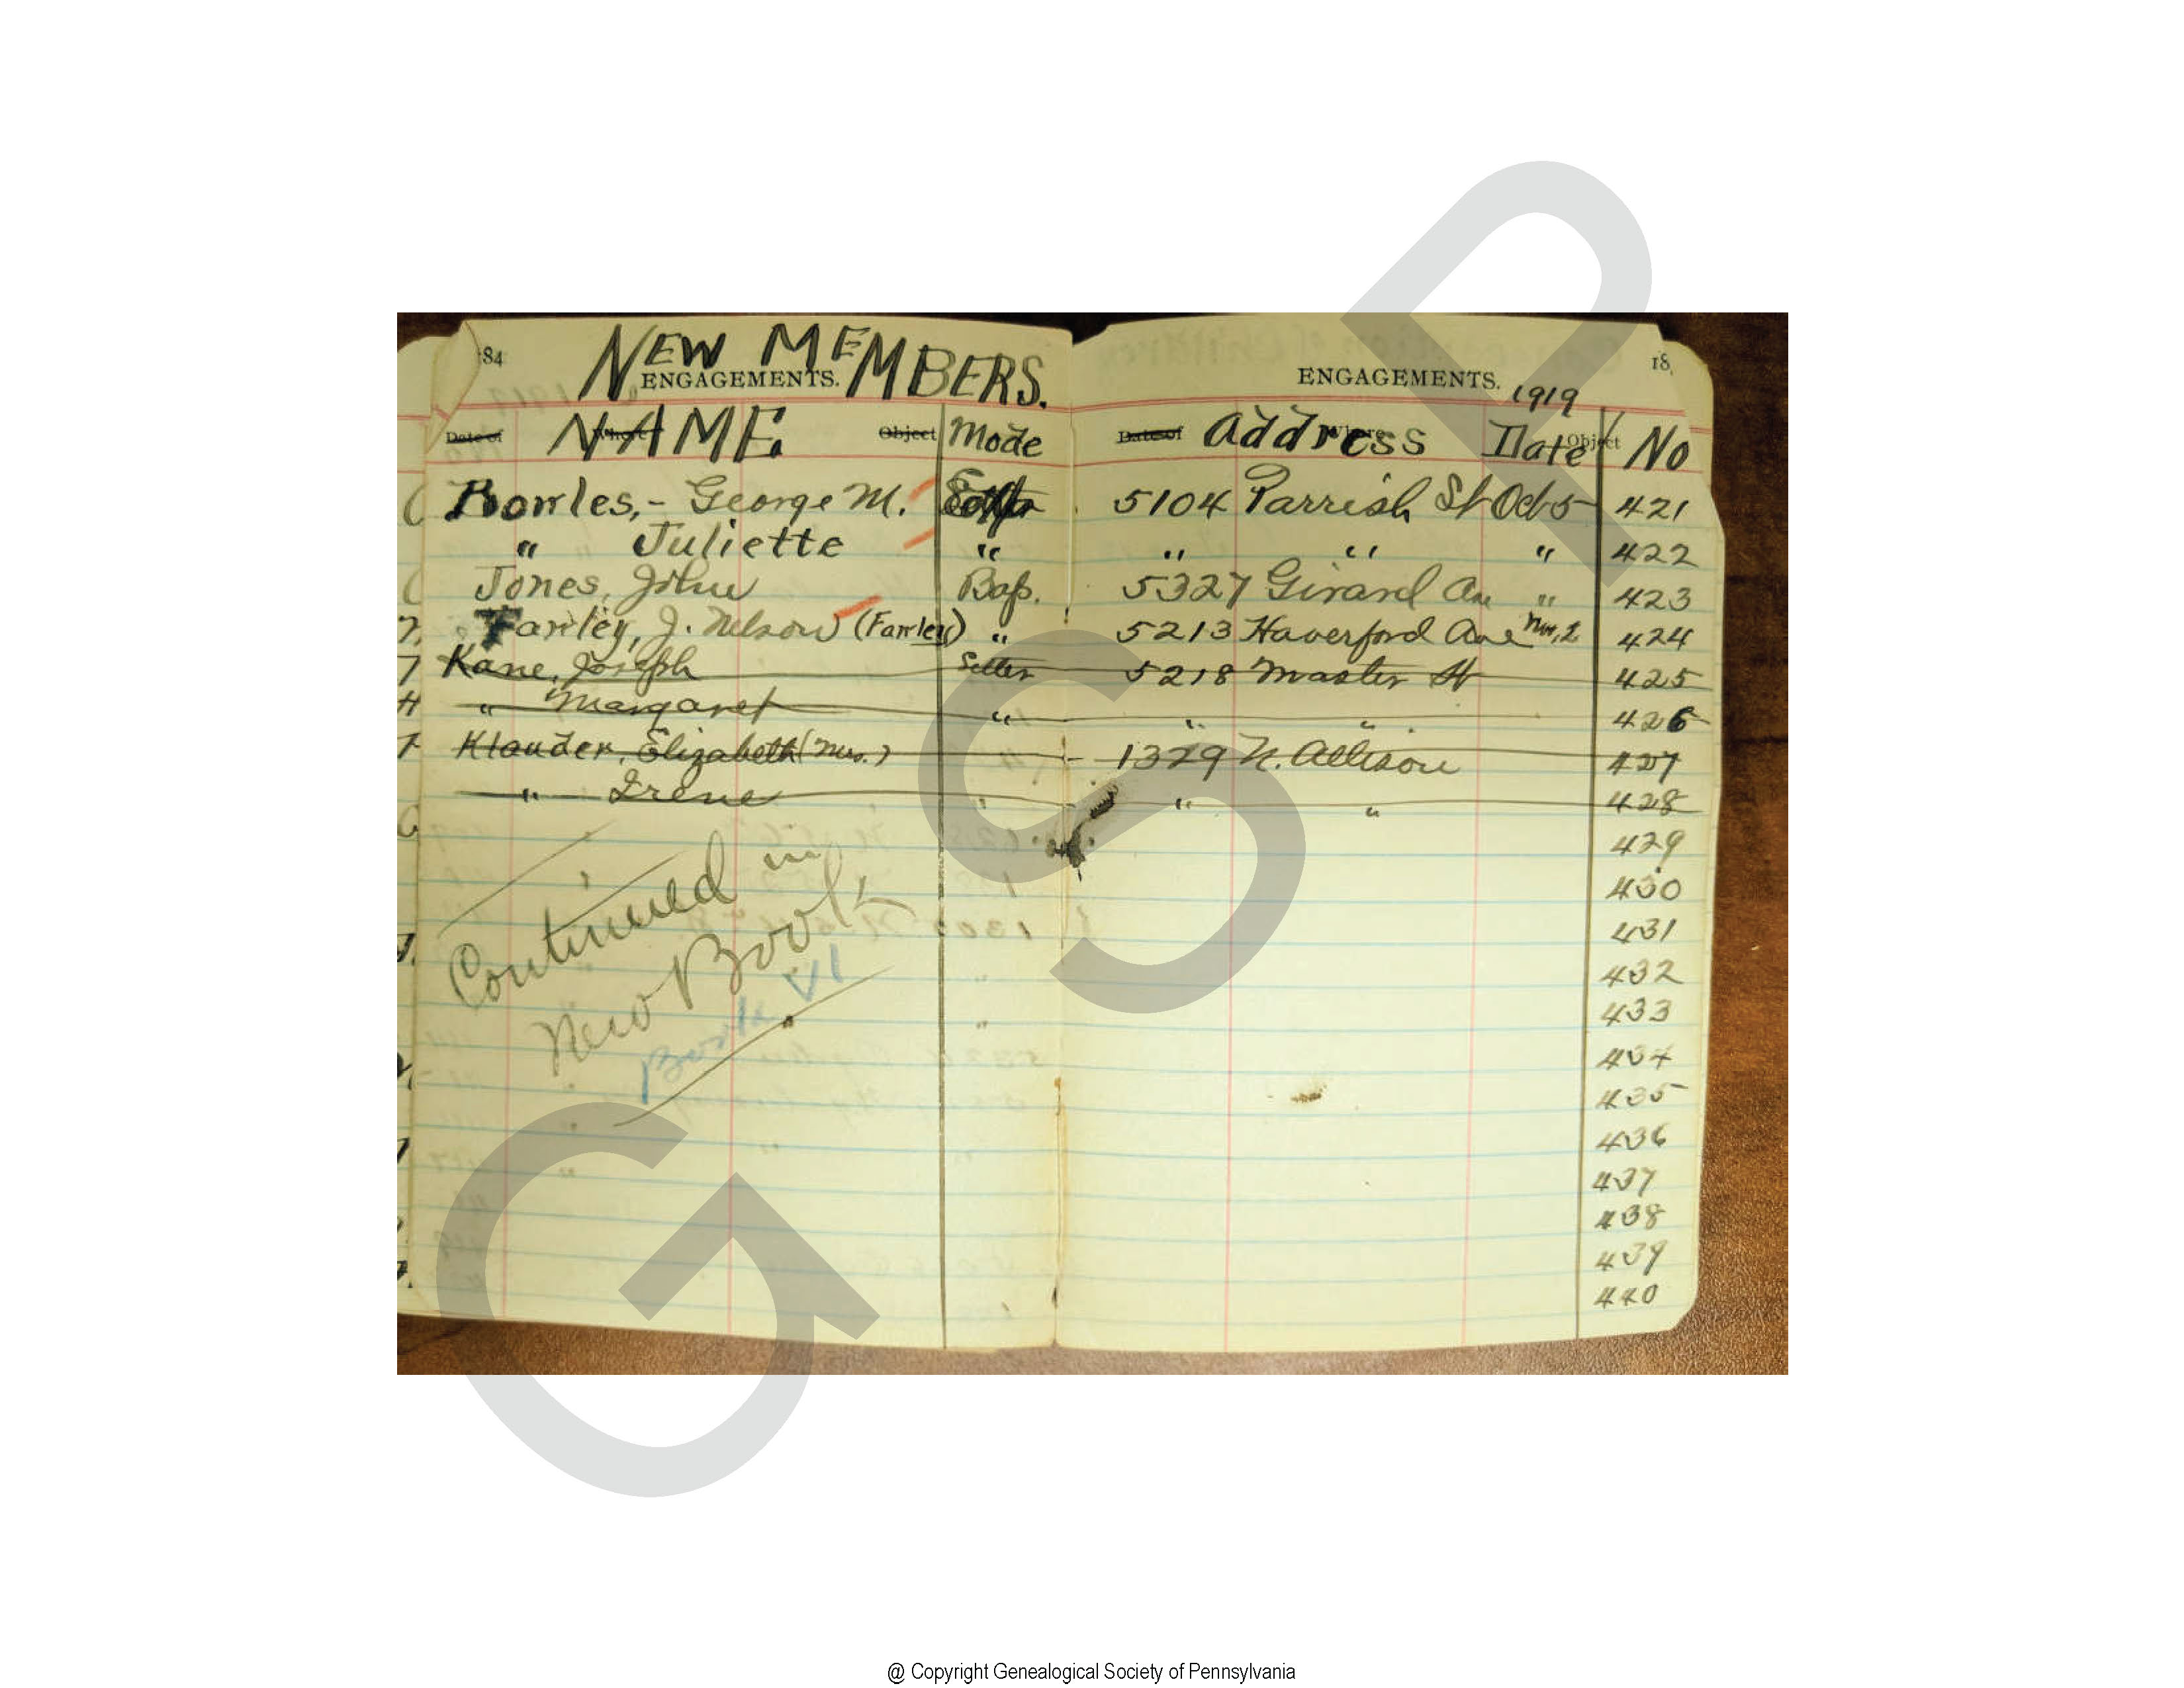 84 NEW MEMBERS.
ENGAGEMENTS.
ENGAGEMENTS. 18
1919
Date of NAME Where Object Mode Date of Address Where Date Object No
Bowles,- George M. 5104 Parrish St Oct 5 421
" Juliette " " " " 422
Jones, John Bap. 5327 Girard Ave " 423
Farrley, J. Nelson (Farrley) " 5213 Haverford Ave Nov. 2 424
Kane, Joseph Letter 5218 Master St 425
" Margaret " " " 426
Klauder, Elizabeth (Mrs.) 1329 N. Allison 427
" Irene " " 428
429
430
431
432
433
434
435
436
437
438
439
440
Continued in
New Book
Book VI
GSP
@ Copyright Genealogical Society of Pennsylvania